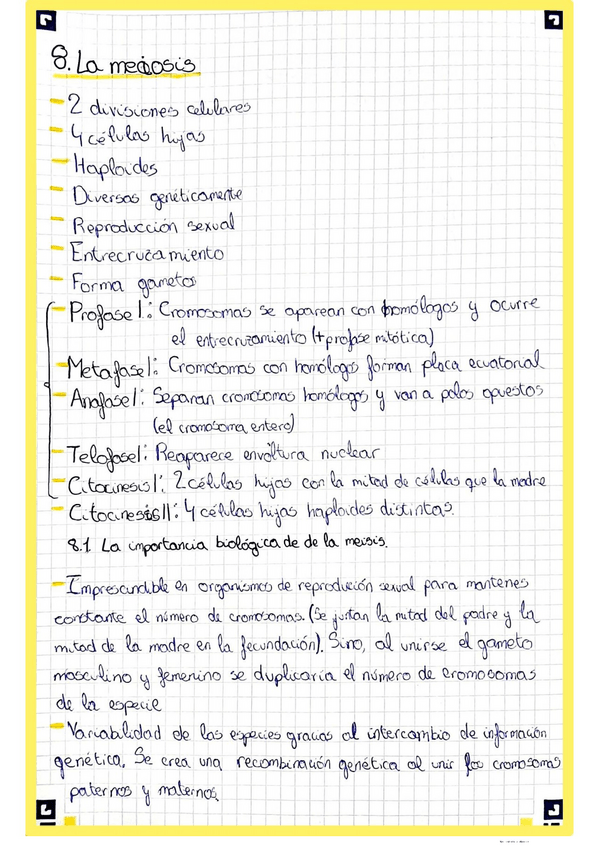 8. La meiosis
- 2 divisiones celulares
- 4 células hijas
- Haploides
- Diversas genéticamente
- Reproducción sexual
- Entrecruzamiento
- Forma gametos
- Profase I: Cromosomas se aparean con homólogos y ocurre
el entrecruzamiento (+ profase mitótica)
- Metafase I: Cromosomas con homólogos forman placa ecuatorial
- Anafase I: Separan cromosomas homólogos y van a polos opuestos
(el cromosoma entero)
- Telofase I: Reaparece envoltura nuclear
- Citocinesis I: 2 células hijas con la mitad de células que la madre
- Citocinesis II: 4 células hijas haploides distintas.
8.1. La importancia biológica de de la meisis.
- Imprescindible en organismos de reprodución sexual para mantenes
constante el número de cromosomas. (Se juntan la mitad del padre y la
mitad de la madre en la fecundación). Sino, al unirse el gameto
masculino y femenino se duplicaría el número de cromosomas
de la especie
- Variabilidad de las especies gracias al intercambio de información
genética. Se crea una recombinación genética al unir los cromosomas
paternos y maternos.